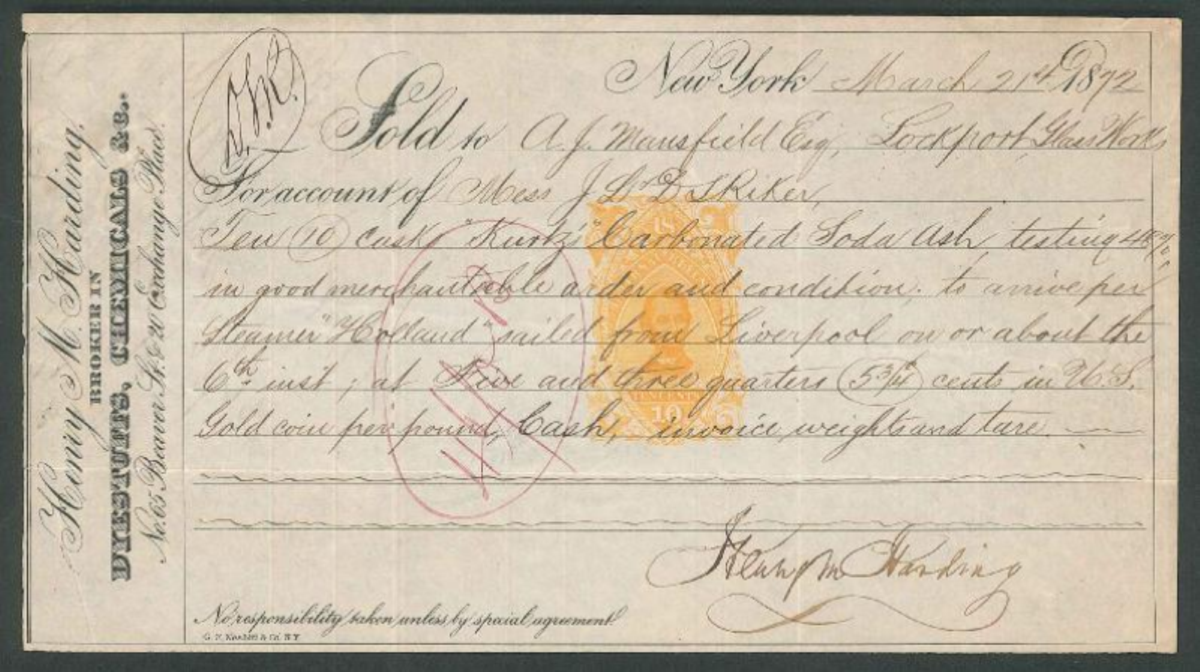 Henry M. Harding.
BROKER IN
DYESTUFFS, CHEMICALS &c.
No. 65 Beaver St. & 20 Exchange Place.
New York March 21st 1872
Sold to A. J. Mansfield Esq, Lockport Glass Works
For account of Mess J. L. & D. S. Riker,
Ten (10) cask "Kurtz" Carbonated Soda Ash, testing 48%
in good merchantable order and condition; to arrive per
Steamer "Holland" sailed from Liverpool on or about the
6th inst; at Five and three quarters (5 3/4) cents in U.S.
Gold coin per pound, Cash, invoice weights and tare.
TEN CENTS
10
Henry M Harding
No responsibility taken unless by special agreement.